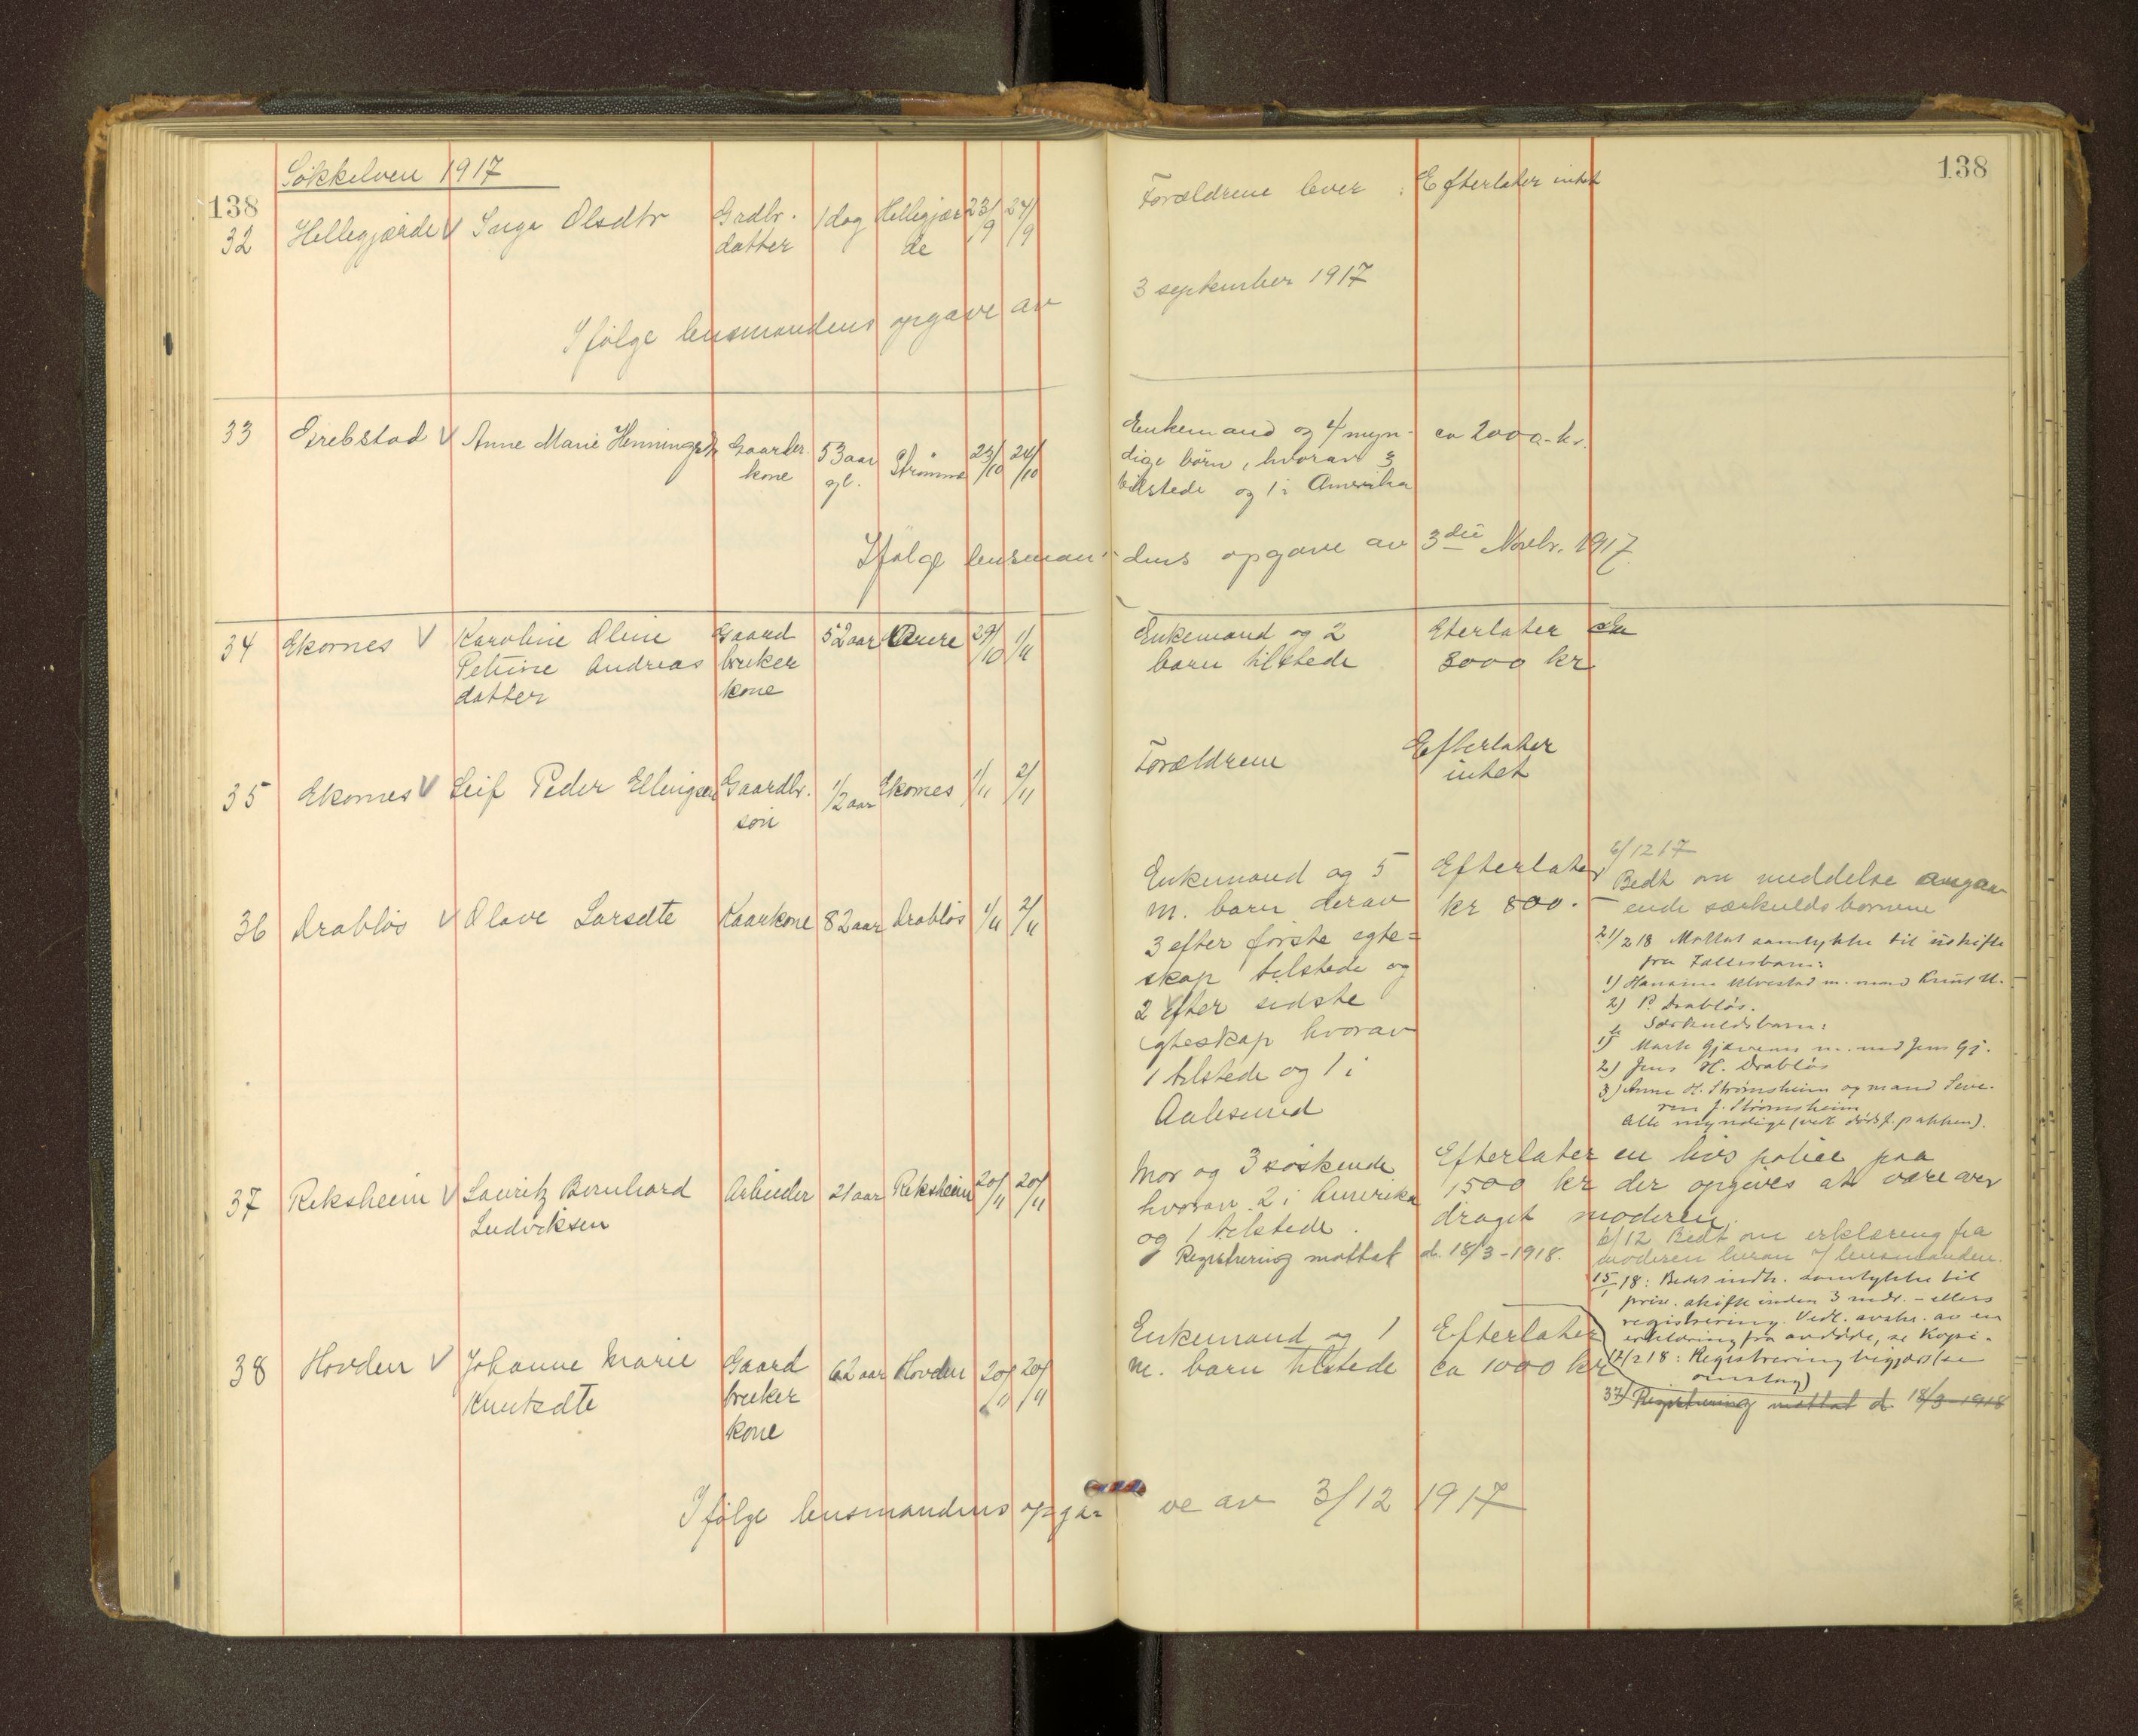 Søkkelven 1917
138
138
32 Hellegjærde V Inga Olsdtr Grdbr. 1 dag Hellegjær 23/9 24/9 Forældrene lever : Efterlater intet
datter de
Ifølge lensmandens opgave av 3 september 1917
33 Grebstad V Anne Marie Henningsdtr Gaardbr. 53 aar Strømme 23/10 24/10 Enkemand og 4 myn- ca 2000.- kr.
kone gl. dige børn, hvorav 3
tilstede og 1 i Amerika
Ifølge lensman- dens opgave av 3die Novbr. 1917.
34 Ekornes V Karoline Oline Gaard 52 aar Aure 29/10 1/11 Enkemand og 2 Eterlater
Petrine Andreas bruker barn tilstede 8000 kr
datter kone
35 Ekornes V Leif Peder Ellingsen Gaardbr. 1/2 aar Ekornes 1/11 2/11 Forældrene Efterlater
søn intet
36 Drabløs V Olave Larsdte Kaarkone 82 aar Drabløs 1/11 2/11 Enkemand og 5 Efterlater
m. barn derav kr 800.-
3 efter første egte=
skap tilstede og
2 efter sidste
egteskap hvorav
1 tilstede og 1 i
Aalesund
6/12 17
Bedt om meddelse angaa
ende særkuldsbørnene
21/2 18 Mottat samtykke til utskifte
fra Fællesbarn:
1) Hanna Ulvestad m. mand Knut U.
2) P. Drabløs.
Særkuldsbarn:
1) Marte Gjævenes m. med Jens Gj.
2) Jens H. Drabløs
3) Anne H. Strømsheim og mand Seve-
ren J. Strømsheim
Alle myndige (vedl. dødsf. pakken).
37 Reksheim V Lauritz Bernhard Arbeider 21 aar Reksheim 20/11 20/11 Mor og 3 søskende Efterlater en livs police paa
Ludviksen hvorav 2 i Amerika 1500 kr der opgives at være over
og 1 tilstede. draget moderen.
Registrering mottat d. 18/3-1918.
6/12 Bedt om erklæring fra
moderen herom f lensmanden.
15/1 18: Bedes indh. samtykke til
priv. skifte inden 3 mdr. - ellers
registrering. Vedl. avskr. av en
erklæring fra avdøde, se Kopi-
12/2 18: Registrering begjært (se
omslag)
37) Registrering mottat d. 18/3-1918
38 Hovden V Johanne Marie Gaard 62 aar Hovden 20/11 20/11 Enkemand og 1 Efterlater
Knutsdte bruker m. barn tilstede ca 1000 kr
kone
Ifølge lensmandens opga= ve av 3/12 1917